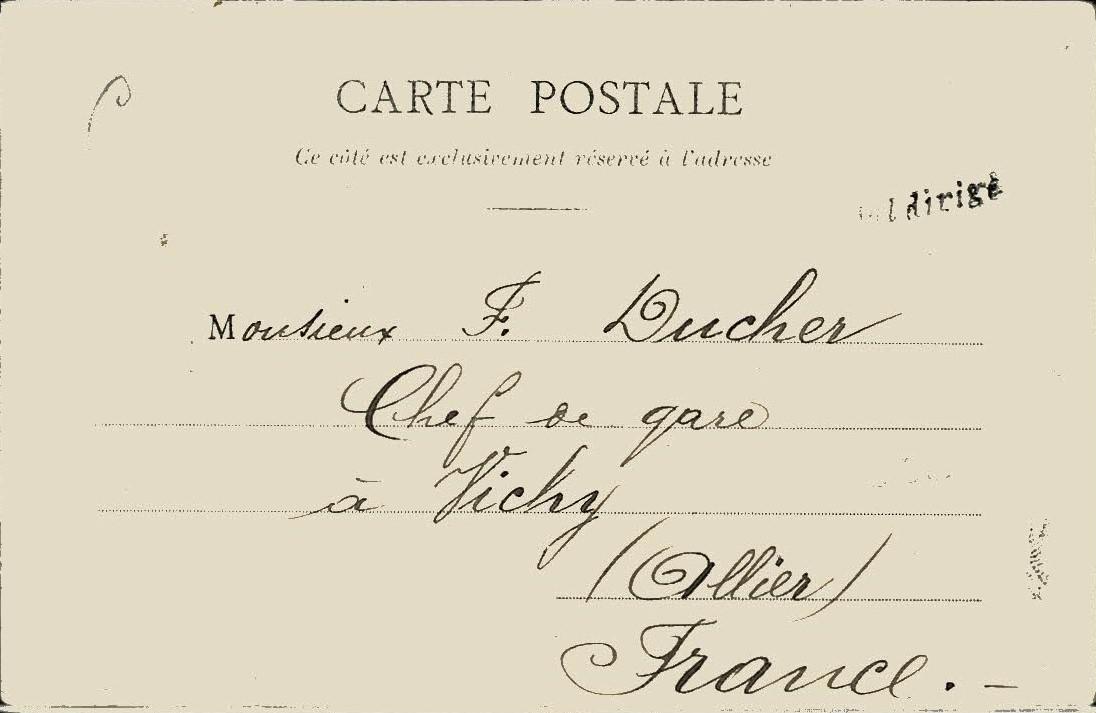 CARTE POSTALE
Ce côté est exclusivement réservé à l'adresse
dirigé
Monsieur F. Ducher
Chef de gare
à Vichy
(Allier)
France. -